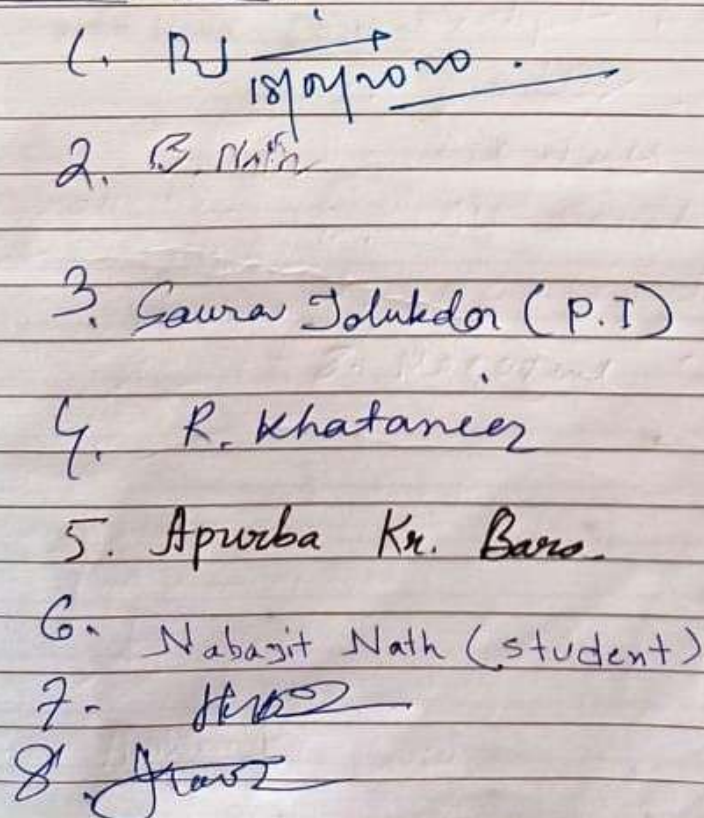 1.
18/01/2020.
2. B. Nath
3. Gaurav Talukdar (P.I)
4. R. Khataniar
5. Apurba Kr. Baro.
6. Nabajit Nath (student)
7.
8.